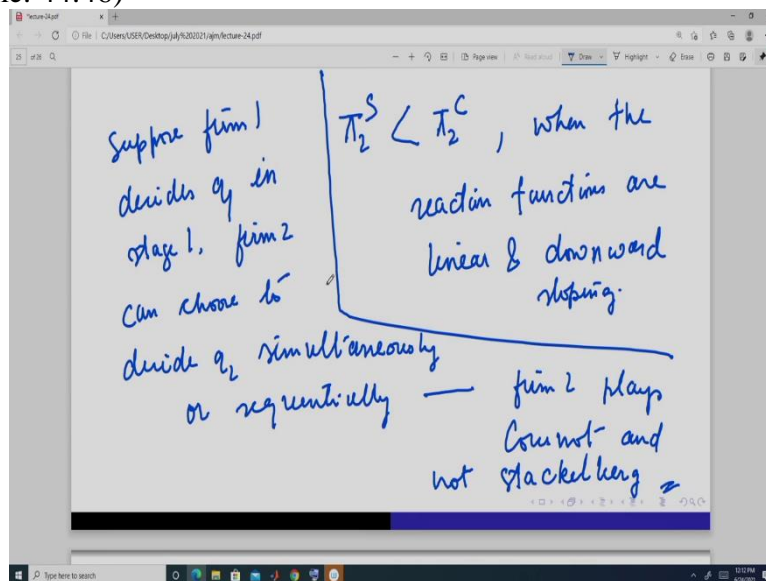 *lecture-24.pdf
File | C:/Users/USER/Desktop/july%202021/ajm/lecture-24.pdf
25 of 26
Page view | Read aloud | Draw Highlight Erase
suppose firm 1
decides q1 in
stage 1, firm 2
can choose to
decide q2 simultaneously
or sequentially — firm 2 plays
Cournot and
not stackelberg
π₂ˢ < π₂ᶜ, when the
reaction functions are
linear & downward
sloping.
Type here to search
12:12 PM